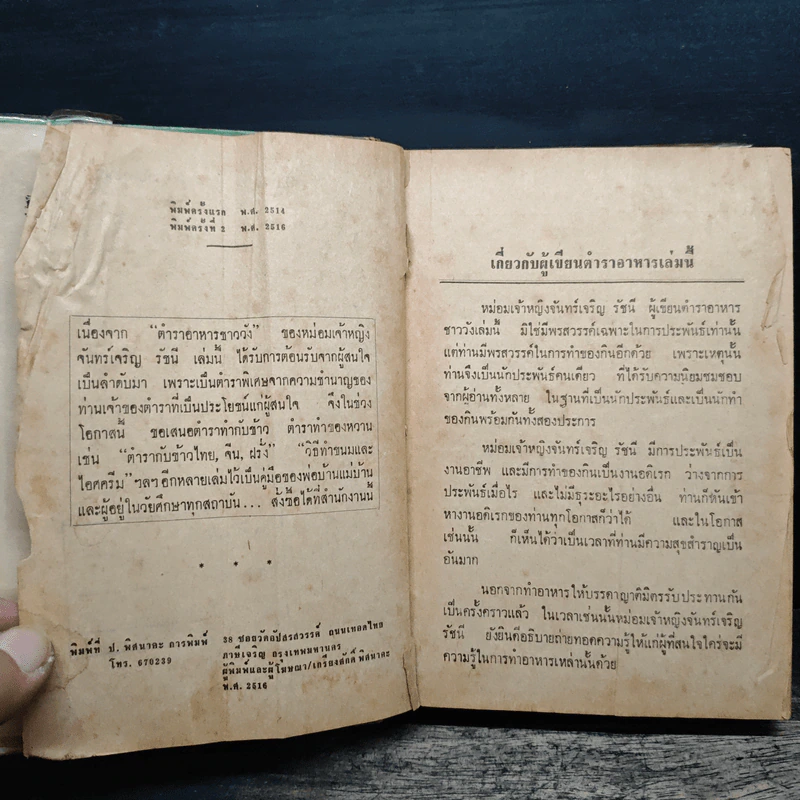 พิมพ์ครั้งแรก พ.ศ. 2514
พิมพ์ครั้งที่ 2 พ.ศ. 2516
เนื่องจาก “ตำราอาหารชาววัง” ของหม่อมเจ้าหญิง
จันทร์เจริญ รัชนี เล่มนี้ ได้รับการต้อนรับจากผู้สนใจ
เป็นลำดับมา เพราะเป็นตำราพิเศษจากความชำนาญของ
ท่านเจ้าของตำราที่เป็นประโยชน์แก่ผู้สนใจ จึงในช่วง
โอกาสนี้ ขอเสนอตำราทำกับข้าว ตำราทำของหวาน
เช่น “ตำรากับข้าวไทย, จีน, ฝรั่ง” “วิธีทำขนมและ
ไอศครีม” ฯลฯ อีกหลายเล่มไว้เป็นคู่มือของพ่อบ้านแม่บ้าน
และผู้อยู่ในวัยศึกษาทุกสถาบัน... สั่งซื้อได้ที่สำนักงานนี้
* * *
พิมพ์ที่ ป. พิศนาคะ การพิมพ์ 38 ซอยวัดอัปสรสวรรค์ ถนนเทอดไทย
โทร. 670239 ภาษีเจริญ กรุงเทพมหานคร
ผู้พิมพ์และผู้โฆษณา/เกรียงศักดิ์ พิศนาคะ
พ.ศ. 2516
เกี่ยวกับผู้เขียนตำราอาหารเล่มนี้
หม่อมเจ้าหญิงจันทร์เจริญ รัชนี ผู้เขียนตำราอาหาร
ชาววังเล่มนี้ มิใช่มีพรสวรรค์เฉพาะในการประพันธ์เท่านั้น
แต่ท่านมีพรสวรรค์ในการทำของกินอีกด้วย เพราะเหตุนั้น
ท่านจึงเป็นนักประพันธ์คนเดียว ที่ได้รับความนิยมชมชอบ
จากผู้อ่านทั้งหลาย ในฐานที่เป็นนักประพันธ์และเป็นนักทำ
ของกินพร้อมกันทั้งสองประการ
หม่อมเจ้าหญิงจันทร์เจริญ รัชนี มีการประพันธ์เป็น
งานอาชีพ และมีการทำของกินเป็นงานอดิเรก ว่างจากการ
ประพันธ์เมื่อไร และไม่มีธุระอะไรอย่างอื่น ท่านก็หันเข้า
หางานอดิเรกของท่านทุกโอกาสก็ว่าได้ และในโอกาส
เช่นนั้น ก็เห็นได้ว่าเป็นเวลาที่ท่านมีความสุขสำราญเป็น
อันมาก
นอกจากทำอาหารให้บรรดาญาติมิตรรับประทานกัน
เป็นครั้งคราวแล้ว ในเวลาเช่นนั้นหม่อมเจ้าหญิงจันทร์เจริญ
รัชนี ยังยินดีอธิบายถ่ายทอดความรู้ให้แก่ผู้ที่สนใจใคร่จะมี
ความรู้ในการทำอาหารเหล่านั้นด้วย